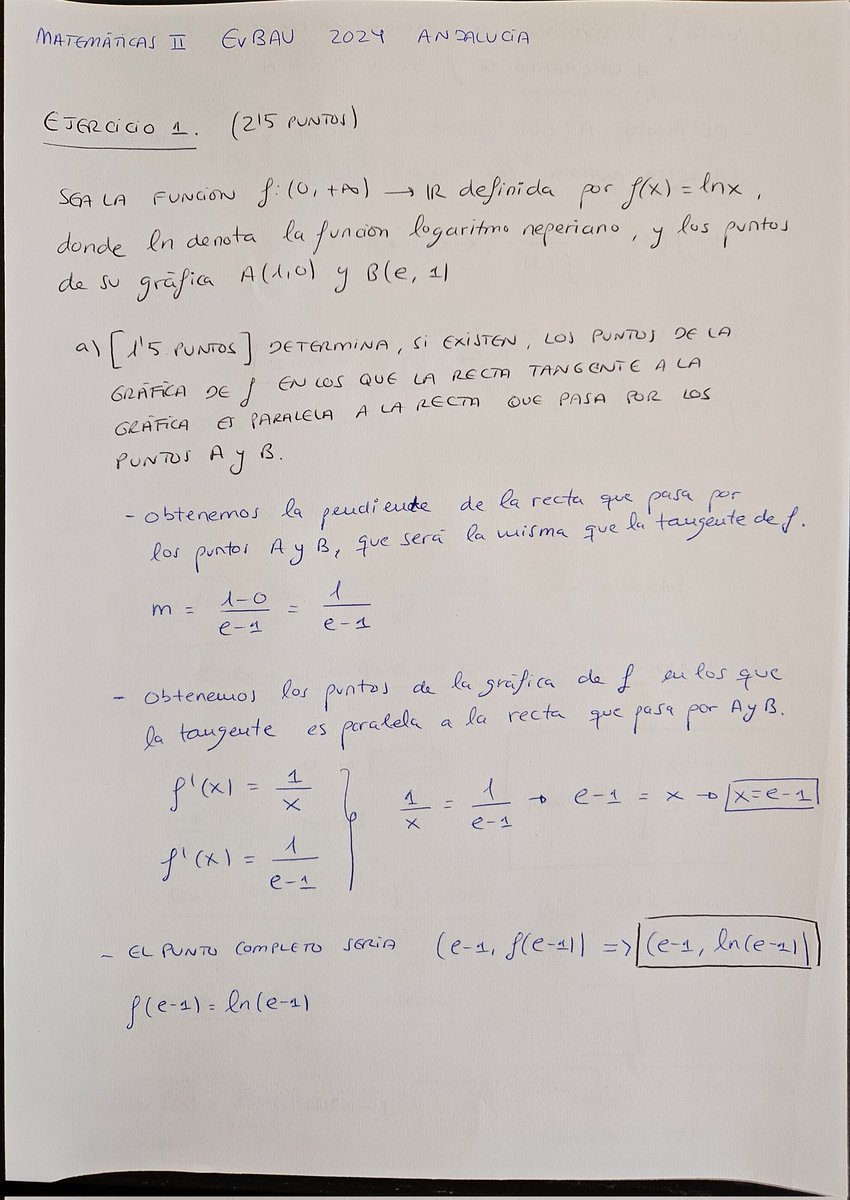 MATEMÁTICAS II EVBAU 2024 ANDALUCÍA
EJERCICIO 1. (2'5 PUNTOS)
SEA LA FUNCIÓN f: (0, +∞) → IR definida por f(x) = lnx,
donde ln denota la función logaritmo neperiano, y los puntos
de su gráfica A(1,0) y B(e, 1)
a) [1'5 PUNTOS] DETERMINA, SI EXISTEN, LOS PUNTOS DE LA
GRÁFICA DE f EN LOS QUE LA RECTA TANGENTE A LA
GRÁFICA ES PARALELA A LA RECTA QUE PASA POR LOS
PUNTOS A y B.
- Obtenemos la pendiente de la recta que pasa por
los puntos A y B, que será la misma que la tangente de f.
m = (1-0)/(e-1) = 1/(e-1)
- Obtenemos los puntos de la gráfica de f en los que
la tangente es paralela a la recta que pasa por A y B.
f'(x) = 1/x
f'(x) = 1/(e-1)
1/x = 1/(e-1) → e-1 = x → x=e-1
- EL PUNTO COMPLETO SERÍA (e-1, f(e-1)) => (e-1, ln(e-1))
f(e-1) = ln(e-1)